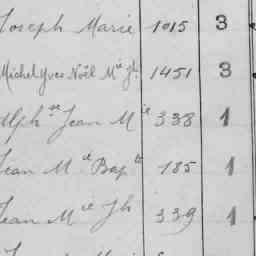 Joseph Marie 1015 3
Michel Yves Noël Mie Jh 1451 3
Alphse Jean Mie 338 1
Jean Mie Bapte 185 1
Jean Mie Jh 339 1